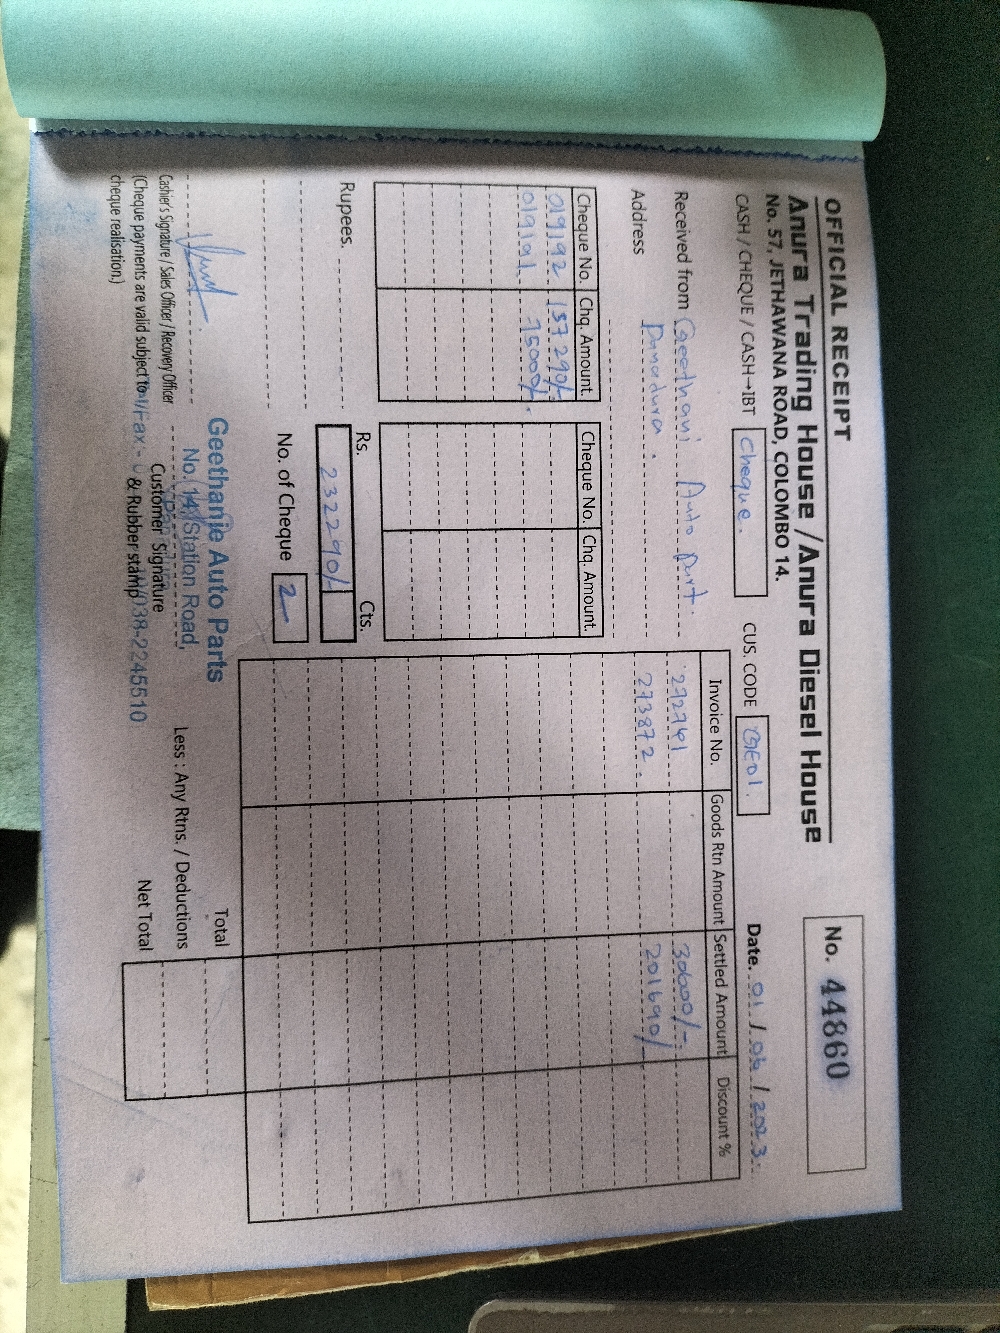 OFFICIAL RECEIPT
No. 44860
Anura Trading House / Anura Diesel House
No. 57, JETHAWANA ROAD, COLOMBO 14.
CASH / CHEQUE / CASH→IBT Cheque. CUS. CODE GE01. Date. 01 / 06 / 2023.
Received from Geethani Auto part.
Address Panadura.
Cheque No. Chq. Amount. Cheque No. Chq. Amount.
019192 157290/-
019191 75000/-
Invoice No. Goods Rtn Amount Settled Amount Discount %
292961 30600/-
293872 201690/-
Rupees. Rs. Cts.
232290/-
No. of Cheque 2
Total
Less : Any Rtns. / Deductions
Net Total
Geethanie Auto Parts
No. 14, Station Road,
038-2245510
Cashier's Signature / Sales Officer / Recovery Officer
Customer Signature
& Rubber stamp
(Cheque payments are valid subject to
cheque realisation.)